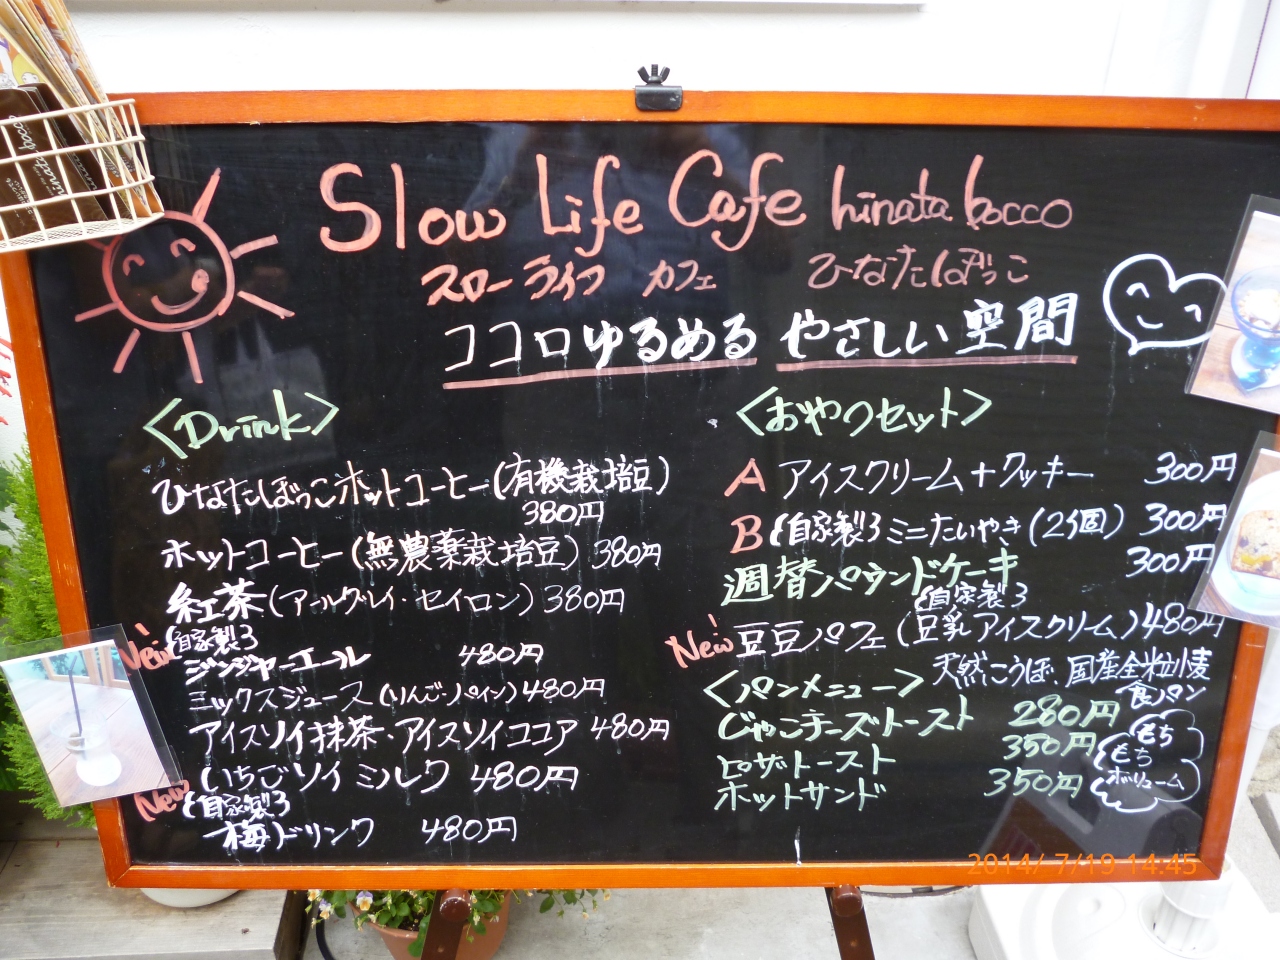 Slow Life Cafe hinata bocco
スローライフ カフェ ひなたぼっこ
ココロゆるめる やさしい空間
<Drink>
ひなたぼっこホットコーヒー(有機栽培豆)
380円
ホットコーヒー(無農薬栽培豆) 380円
紅茶(アールグレイ・セイロン) 380円
New!
{自家製}
ジンジャーエール 480円
ミックスジュース(りんご・パイン) 480円
アイスソイ抹茶・アイスソイココア 480円
いちごソイミルク 480円
New
{自家製}
梅ドリンク 480円
<おやつセット>
A アイスクリーム+クッキー 300円
B {自家製}ミニたいやき(2個) 300円
週替パウンドケーキ 300円
{自家製}
New! 豆豆パフェ(豆乳アイスクリーム) 480円
<パンメニュー> 天然こうぼ、国産全粒小麦
食パン
じゃこチーズトースト 280円
ピザトースト 350円
ホットサンド 350円
もち
もち
ボリューム
2014/ 7/19 14:45